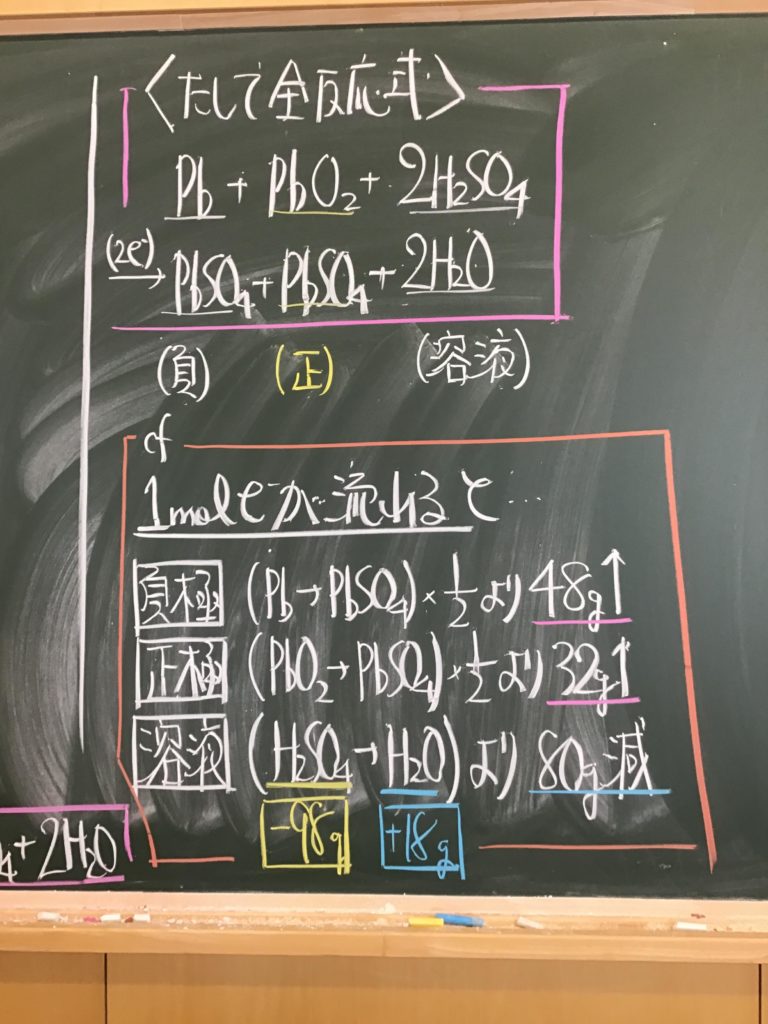 〈たして全反応式〉
Pb + PbO₂ + 2H₂SO₄
(2e⁻)→ PbSO₄ + PbSO₄ + 2H₂O
(負) (正) (溶液)
cf
1mol e⁻が流れると…
負極 (Pb→PbSO₄)×1/2より 48g↑
正極 (PbO₂→PbSO₄)×1/2より 32g↑
溶液 (H₂SO₄→H₂O)より 80g減
-98g +18g
₄+2H₂O